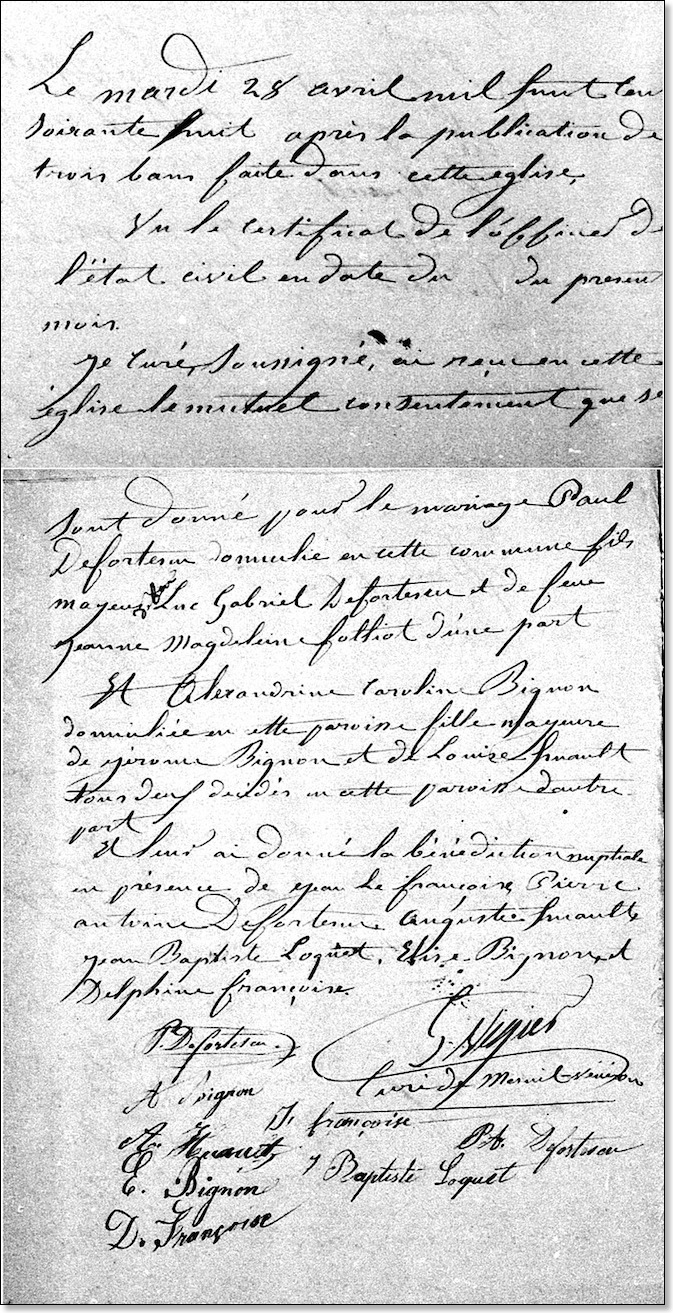 Le mardi 28 avril mil huit cen
soixante huit après la publication de
trois bans faite dans cette église,
Vu le certificat de l'officier de
l'état civil en date du du present
mois.
Je Curé, soussigné, ai reçu en cette
église le mutuel consentement que se
sont donné pour le mariage Paul
Defortescu domicilié en cette commune fils
mayeur de feu Luc Gabriel Defortescu et de feue
Jeanne Magdeleine folliot d'une part
Et Alexandrine Caroline Bignon
domiciliée en cette paroisse fille mayeure
de Jérome Bignon et de Louise huault
tous deux décédés en cette paroisse d'autre
part
Et leur ai donné la bénédiction nuptiale
en présence de Jean Le françoise, Pierre
antoine Defortescu, Auguste huault,
Jean Baptiste Loquet, Elise Bignon, et
Delphine françoise.
P. Defortescu
Curé de Mesnil-Véneron
A Bignon
J. françoise
A. Huault
P. A. Defortescu
E. Bignon
J Baptiste Loquet
D. Françoise